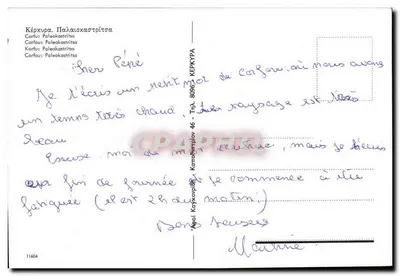 Κέρκυρα. Παλαιοκαστρίτσα
Corfu: Paleokastritsa
Corfou: Paleokastritsa
Korfu: Paleokastritsa
Corfou: Paleokastritsa
Cher Pépé
Je t'écris un petit mot de Corfou où nous avons
un temps très chaud. Le paysage est très
beau
Excuse-moi de mon écriture, mais je t'écris
en fin de journée et je commence à être
fatiguée (il est 2h du matin)
Bons baisers
CPARAMA
46 - Τηλ. 80967 ΚΕΡΚΥΡΑ
11604